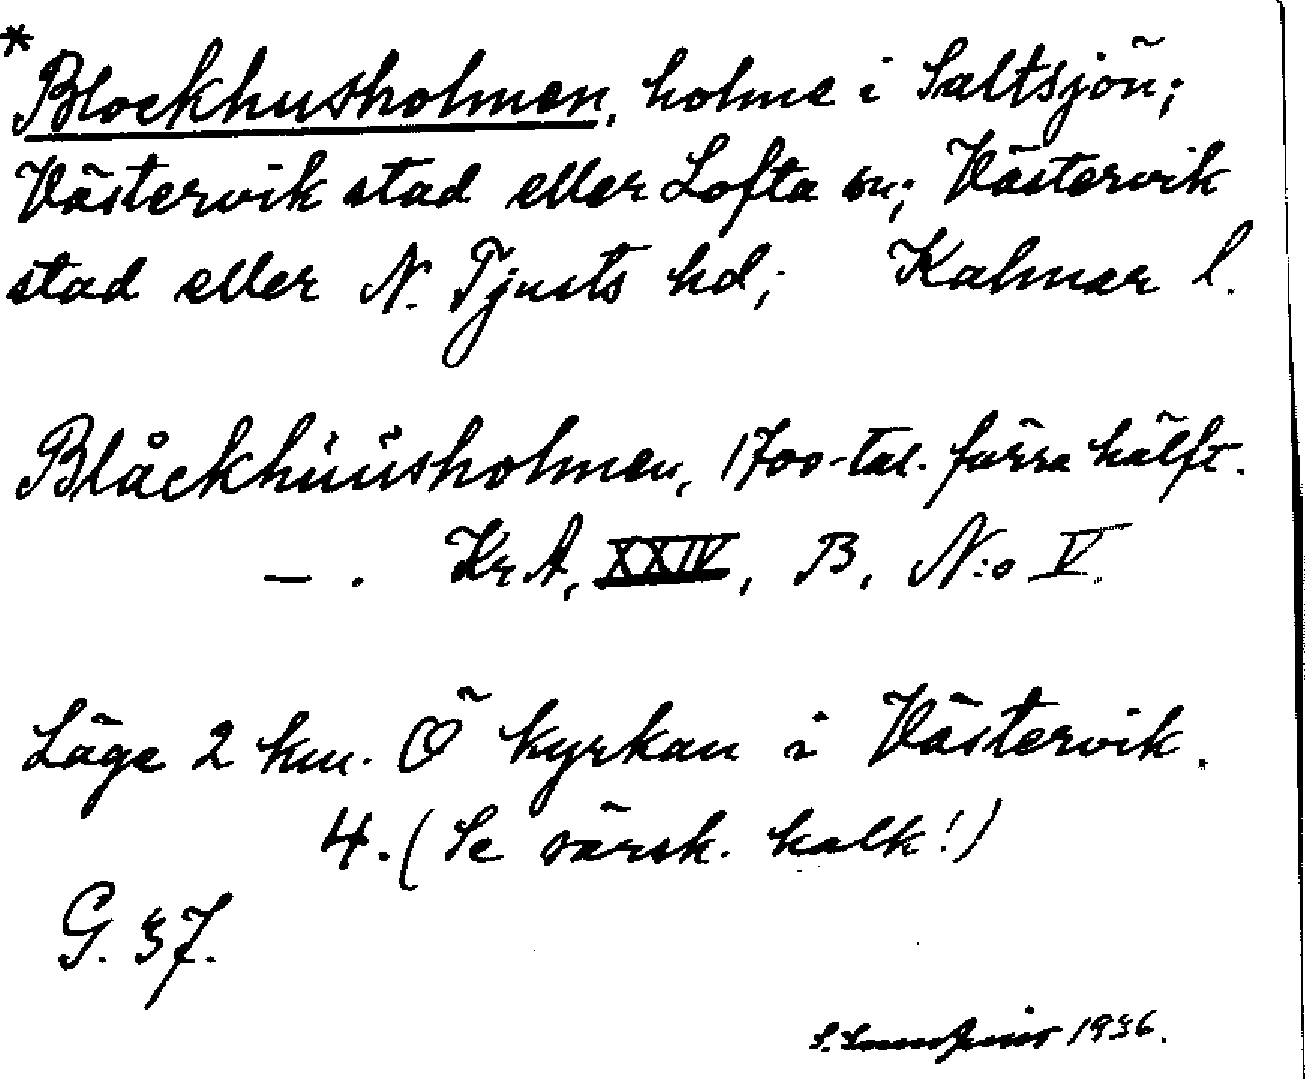 * Blockhusholmen, holme i Saltsjön;
Västervik stad eller Lofta sn; Västervik
stad eller N. Tjusts hd; Kalmar l.
Blåckhúúsholmen, 1700-tal. förra hälft.
— . KrA, XXIV, B, N:o V.
Läge 2 km. Ö kyrkan i Västervik.
4. (Se särsk. kalk!)
G. 37.
1936.